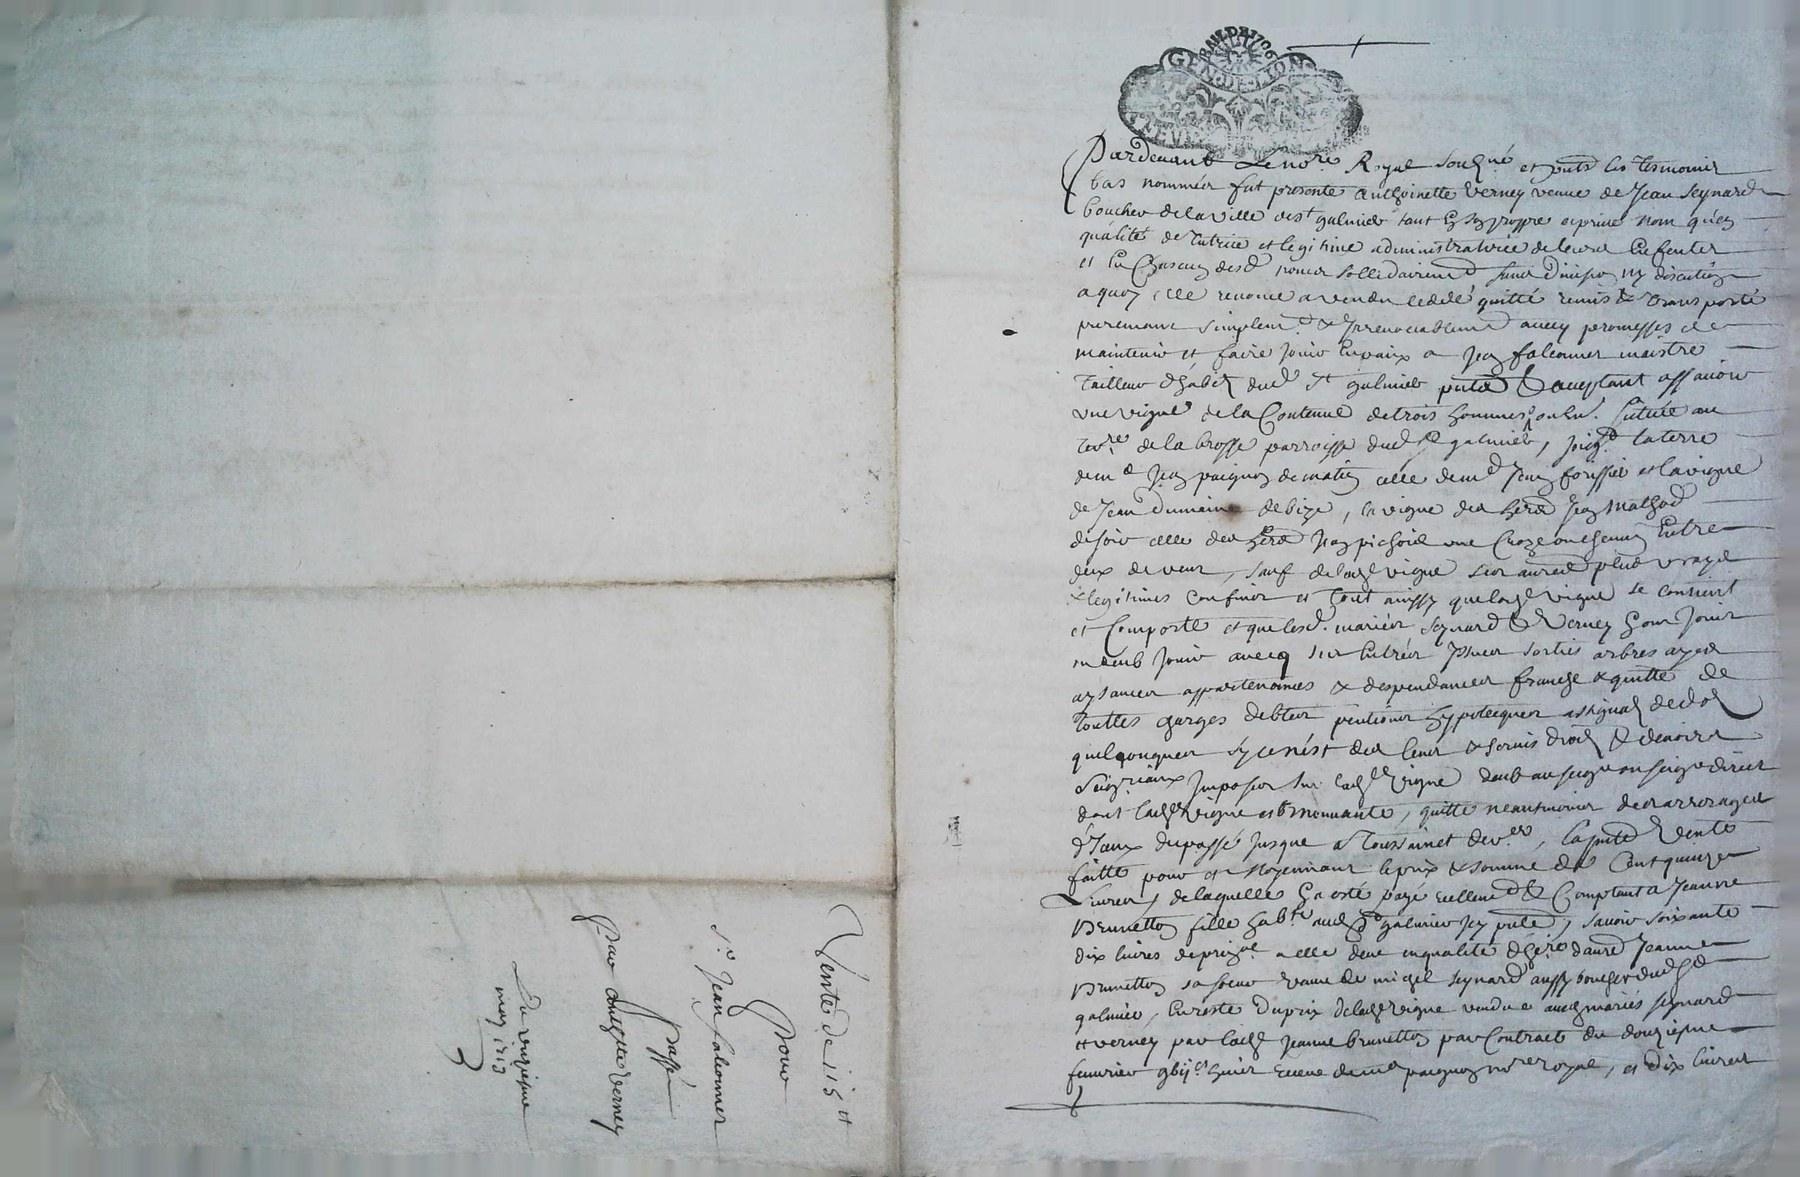 GEN DE LION
Pardevant Le no.re Royal soubg.né et pnts les tesmoins
bas nommés fut presente anthoinette Verney veuve de Jean Seynard
boucher de la ville de st galmier tant en son propre et privé nom qu'en
qualité de tutrice et legitime administratrice de leurs enfents
et en chascun desd. noms sollidairemt sans division ny discution
a quoy elle renonce a vendu cedé quitté remis & transporté
purement simplemt & Irrevocablemt avecq promesses de
maintenir et faire Jouir en paix a Jean faleonner maistre
tailleur d'habits dud st galmier pnt & acceptant assavoir
une vigne de la Contenue de trois hommes ou en. scituée au
terr.re de la brosse parroisse dud st galmier, joig.t la terre
de m.e Jean paignon de matin celle de m.e Jean forissier et la vigne
de Jean Dumaine de bize, la vigne des hers Jean Mathod
de soir celle des hers Jean pichoid une Croze ou chemin Entre
deux de vent, sauf de lad vigne ses autres plus vrays
& legitimes confins et tout ainssy que lad vigne se contient
et Comporte et que lesd. mariés Seynard & Verney en ont Jouir
ou deub Jouir avecq ses entrées Issues sorties arbres ayzes
aysances appartenances & despendances franche & quitte de
touttes charges debtes pentions hyppotecques assignaux de dot
quelconques sy ce n'est des cens & servis droits & devoirs
Seig.riaux Imposés sur lad vigne deub au seig.r ou seig.rs directs
dont lad vigne est mouvante, quitte neantmoins des arrerages
d'Iceux du passé Jusque a Toussainct der.er, la pnte Vente
faitte pour et moyennant le prix & somme de Cent quinze
Livres, de laquelle en a esté payé reellemt & Comptant a Jeanne
Brunetton fille hab.te aud st galmier Icy pnte, savoir soixante
dix livres de prix.al a elle deue en qualité d'her.re d'autre Jeanne
Brunetton sa soeur veuve de michel Seynard aussy boucher dud st
galmier, en reste du prix de lad vigne vendue auxd mariés Seynard
et verney par lad Jeanne brunetton par Contract du douzieme
feuvrier gbijcs hui.t receu de m.e paignon no.re royal, et dix livres
Vente de 115 lt
Pour
S.r Jean faleonner
Passé
Par Antoinette Verney
Du vingtieme
may 1713